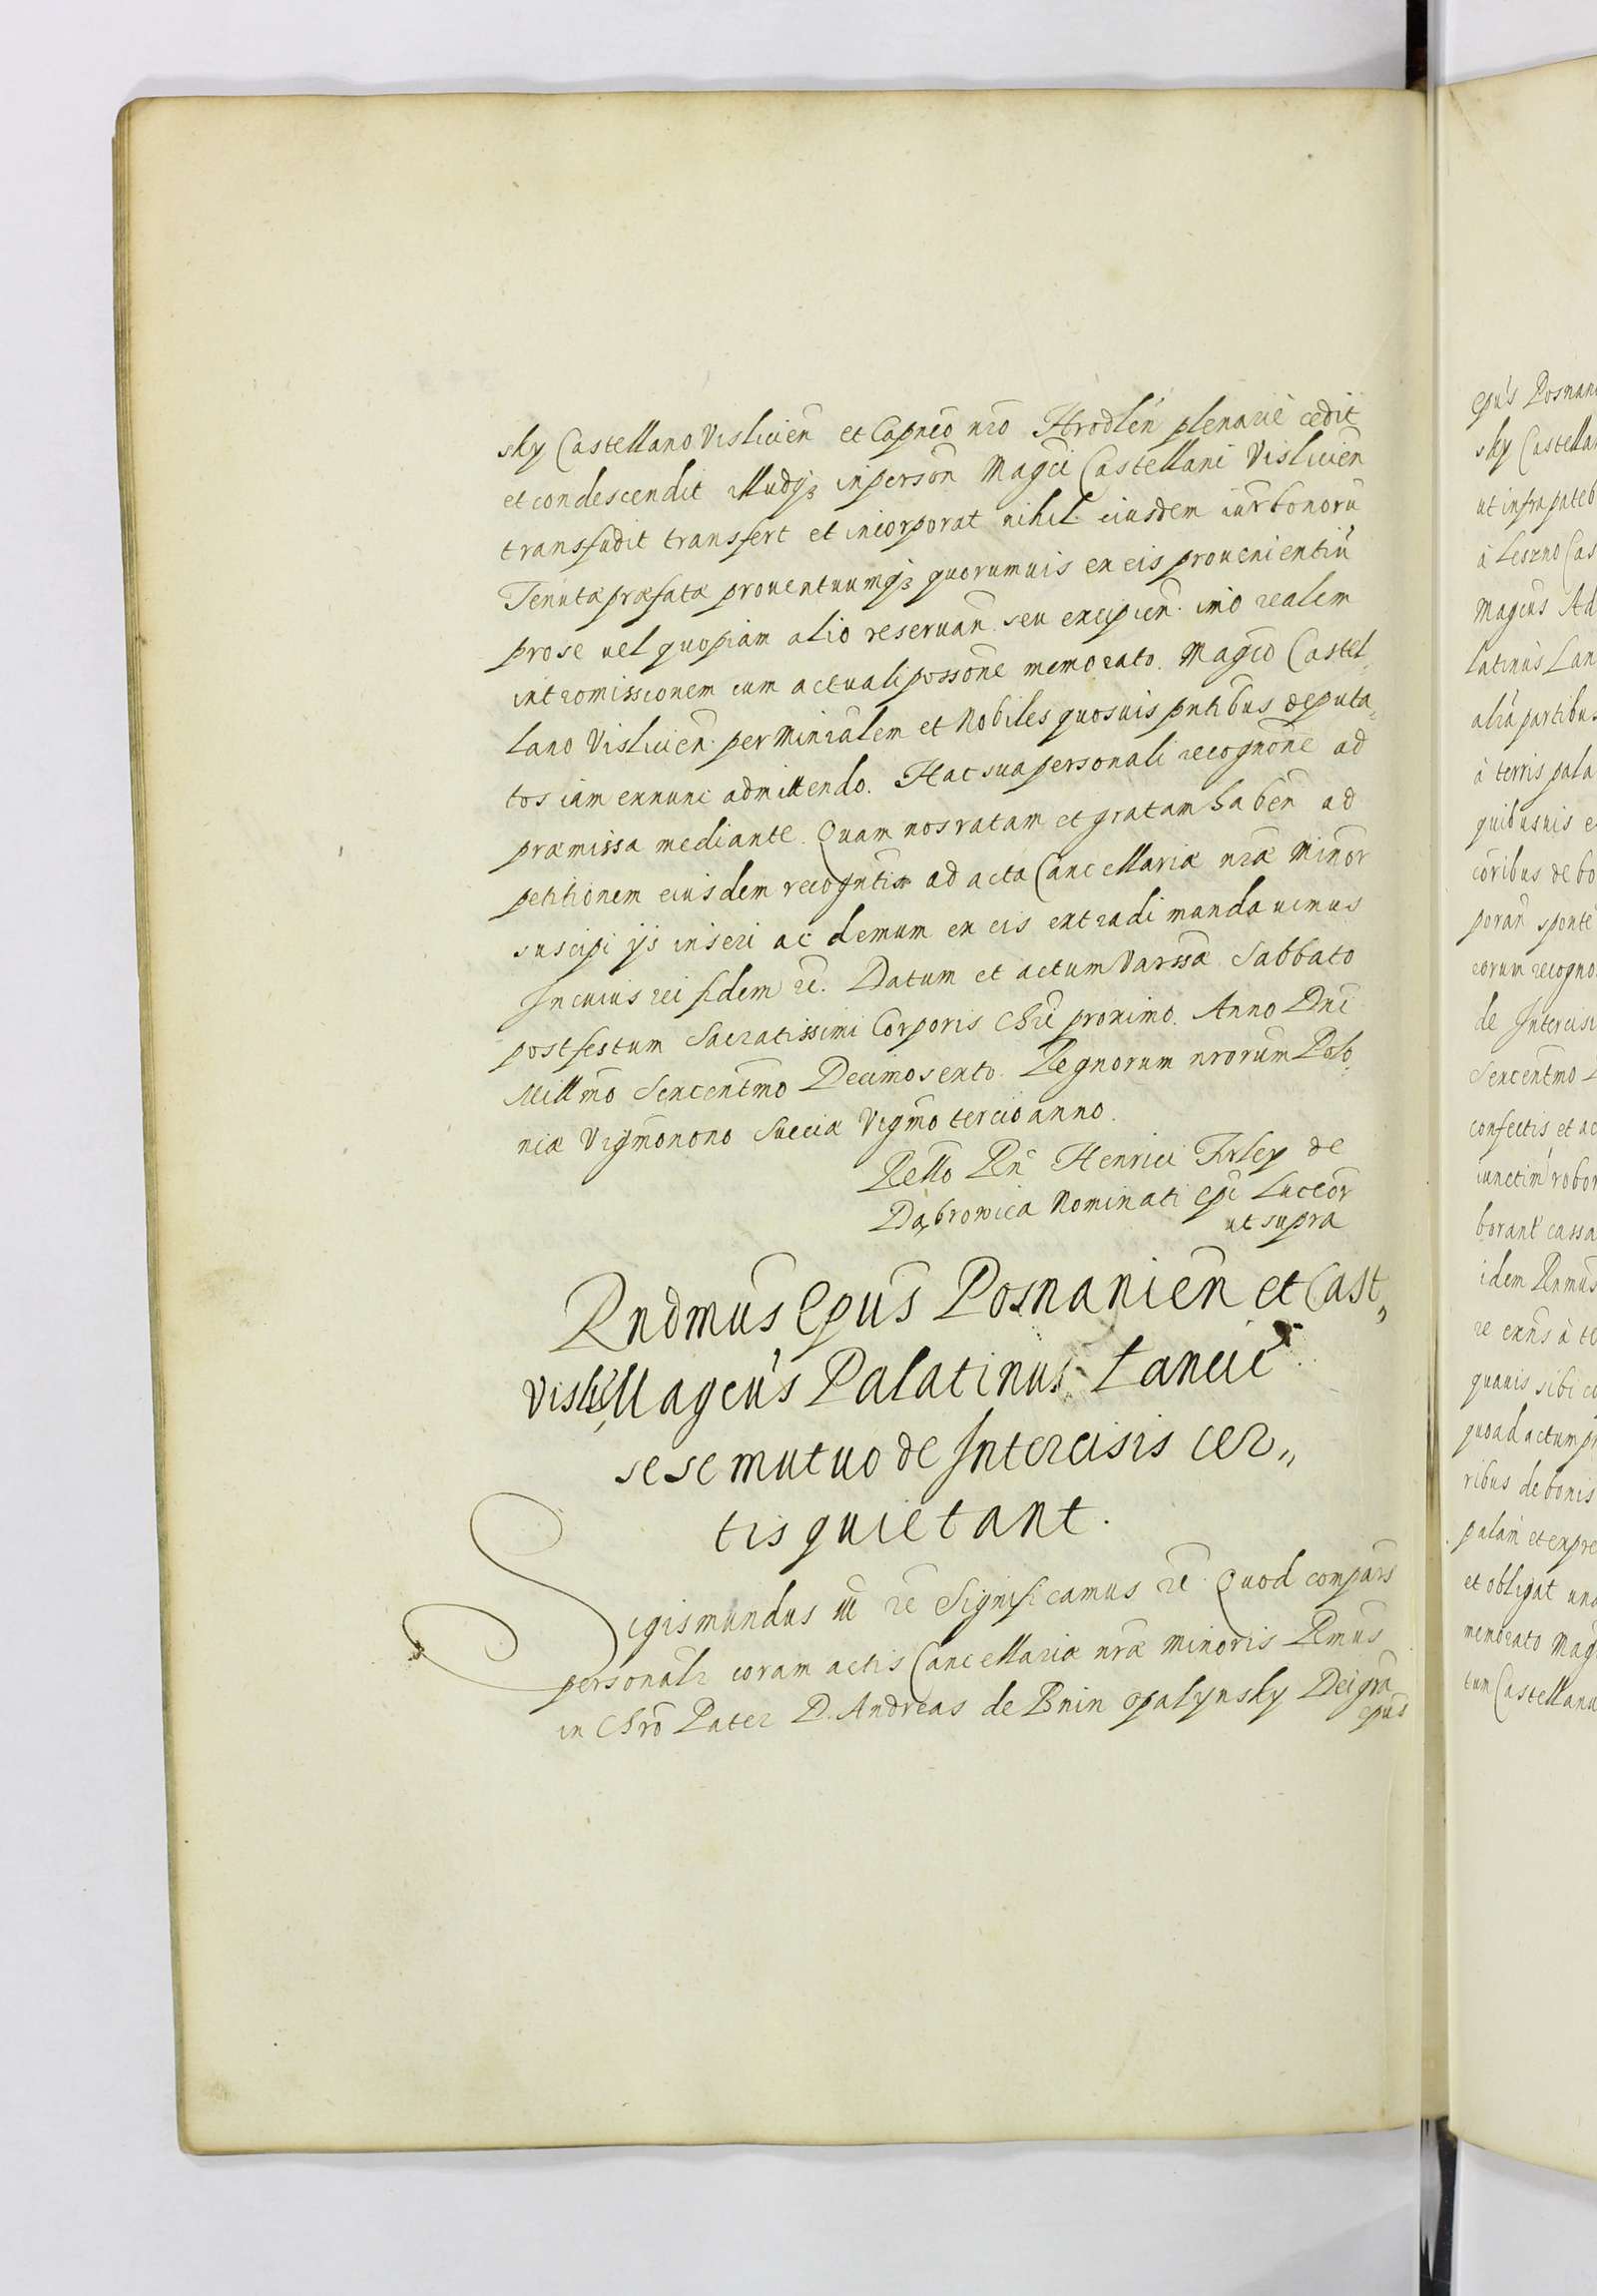 sky Castellano Vislicien̄ et Capn̄eo nr̄o Hrodlen̄ plenariè cedit
et condescendit illudq̨ in person̄ Magci Castellani Vislicien̄
transfudit transfert et incorporat nihil eiusdem iur̄ bonorū
Tenutæ præfatæ prouentuumq̨ quorumuis ex eis prouenientiū
pro se uel quopiam alio reseruan̄. seu excipien̄. imò realem
intromissionem cum actuali possōne memorato. Magco Castel„
lano Vislicien̄. per Minr̄alem et Nobiles quosuis pn̄tibus deputa„
tos iam exnunc admittendo. Hac sua personali recognōne ad
præmissa mediante. Quam nos ratam et gratam haben̄ ad
petitionem eiusdem recogn̄tis ad acta Cancellariæ nr̄æ Minor̄
suscipi ijs inseri ac demum ex eis extradi mandauimus
In cuius rei fidem rc̄. Datum et actum Varssæ Sabbato
post festum Sacratissimi Corporis Chr̄i proximo. Anno Dn̄i
Millm̄o Sexcentm̄o Decimosexto. Regnorum nrorum Polo„
niæ Vigm̄onono Sueciæ Vigm̄o tercio anno.
Rell̄o Rn̄ Henrici Firley de
Dąbrowica Nominati Epī Luceor̄
ut supra
Rndmus Epus Posnanien̄ et Cast„
Visli: Magcus Palatinus Lancic̄
sese mutuo de Intercisis cer„
tis quietant.
Sigismundus III rc̄ Significamus rc̄ Quod compar̄s
personalr̄ coram actis Cancellariæ nr̄æ Minoris Rmus
in Chr̄o Pater D. Andreas de Bnin Opalynsky Dei gr̄a
epus
epus Posnani
sky Castella
ut infra pateb
à Leszno Cas
Magcus Ad
latinus Lan
alia partibus
à terris pala
quibusuis e
coribus de bo
poran̄ sponte
eorum recogno
de Intercisi
Sexcentmo
confectis et ac
iunctim robor
borant cassa
idem Rmus
rc̄ exn̄s à te
quauis sibi co
quoad actum pr
ribus de bonis
palàm et expre
et obligat una
memorato Mag
tum Castellanu